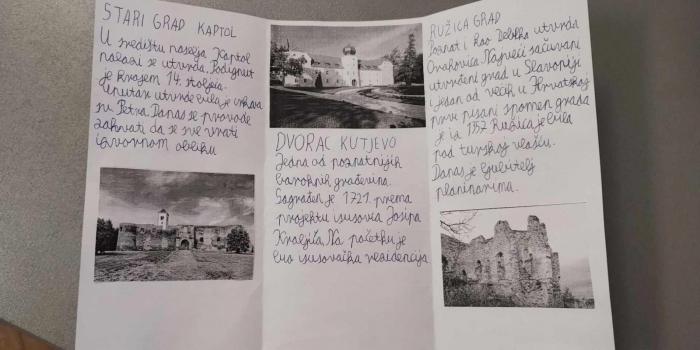 STARI GRAD KAPTOL
U središtu naselja Kaptol
nalazi se utvrda. Podignut
je krajem 14. stoljeća.
Unutar utvrde bila je crkva
sv. Petra. Danas se provode
zahvati da se sve vrati
izvornom obliku
DVORAC KUTJEVO
Jedna od poznatijih
baroknih građevina.
Sagrađen je 1721. prema
projektu isusovca Josipa
Kraljića. Na početku je
bio isusovačka rezidencija
RUŽICA GRAD
Poznat i kao Debela utvrda
Orahovica. Najveći sačuvani
utvrđeni grad u Slavoniji
i jedan od većih u Hrvatskoj
prvi pisani spomen grada
je iz 1357 Ružica je bila
pod turskoj vlašću.
Danas je ljubitelj
planinarima.